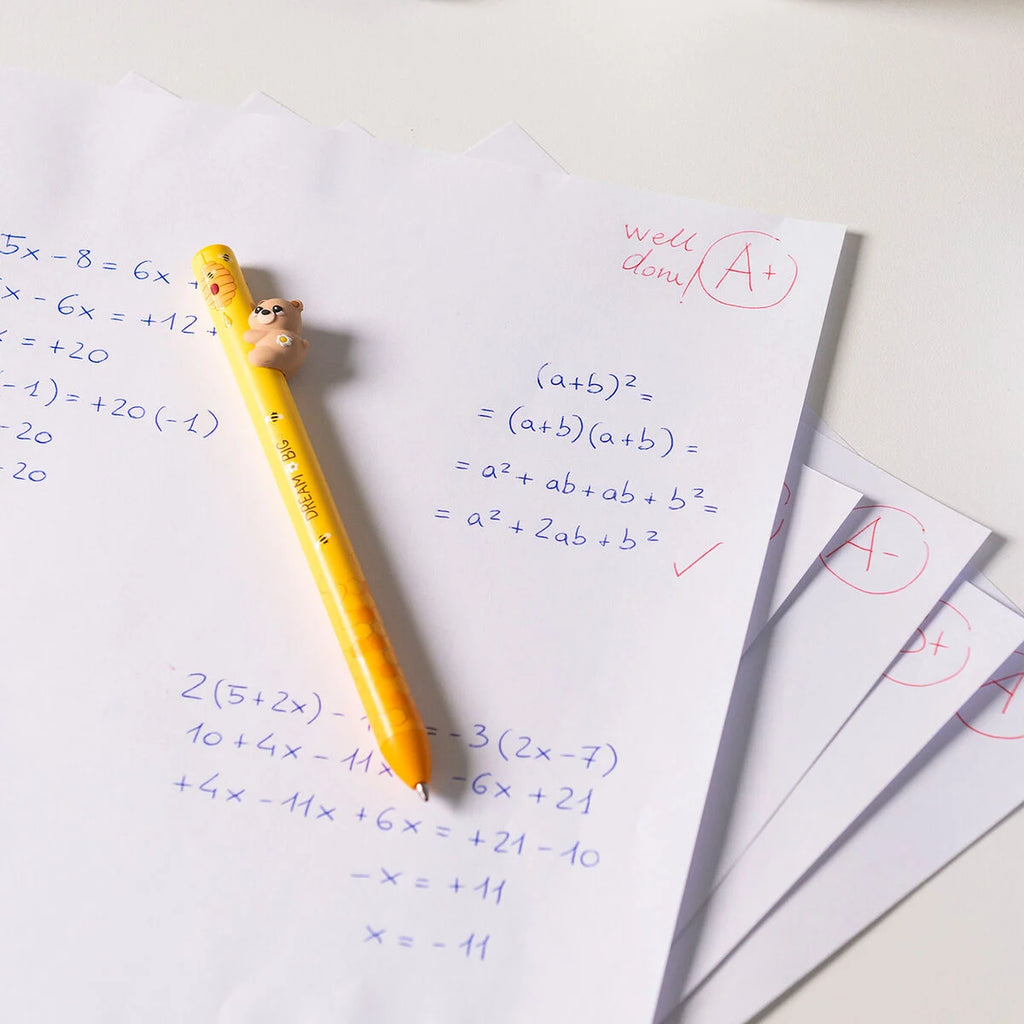 5x - 8 = 6x +
x - 6x = +12 +
= +20
-1) = +20 (-1)
- 20
- 20
well
done!
A+
(a+b)² =
= (a+b)(a+b) =
= a² + ab + ab + b² =
= a² + 2ab + b²
DREAM BIG
2(5+2x) - = -3(2x-7)
10 + 4x - 11x -6x + 21
+4x - 11x + 6x = +21 - 10
-x = +11
x = -11
A-
+
A